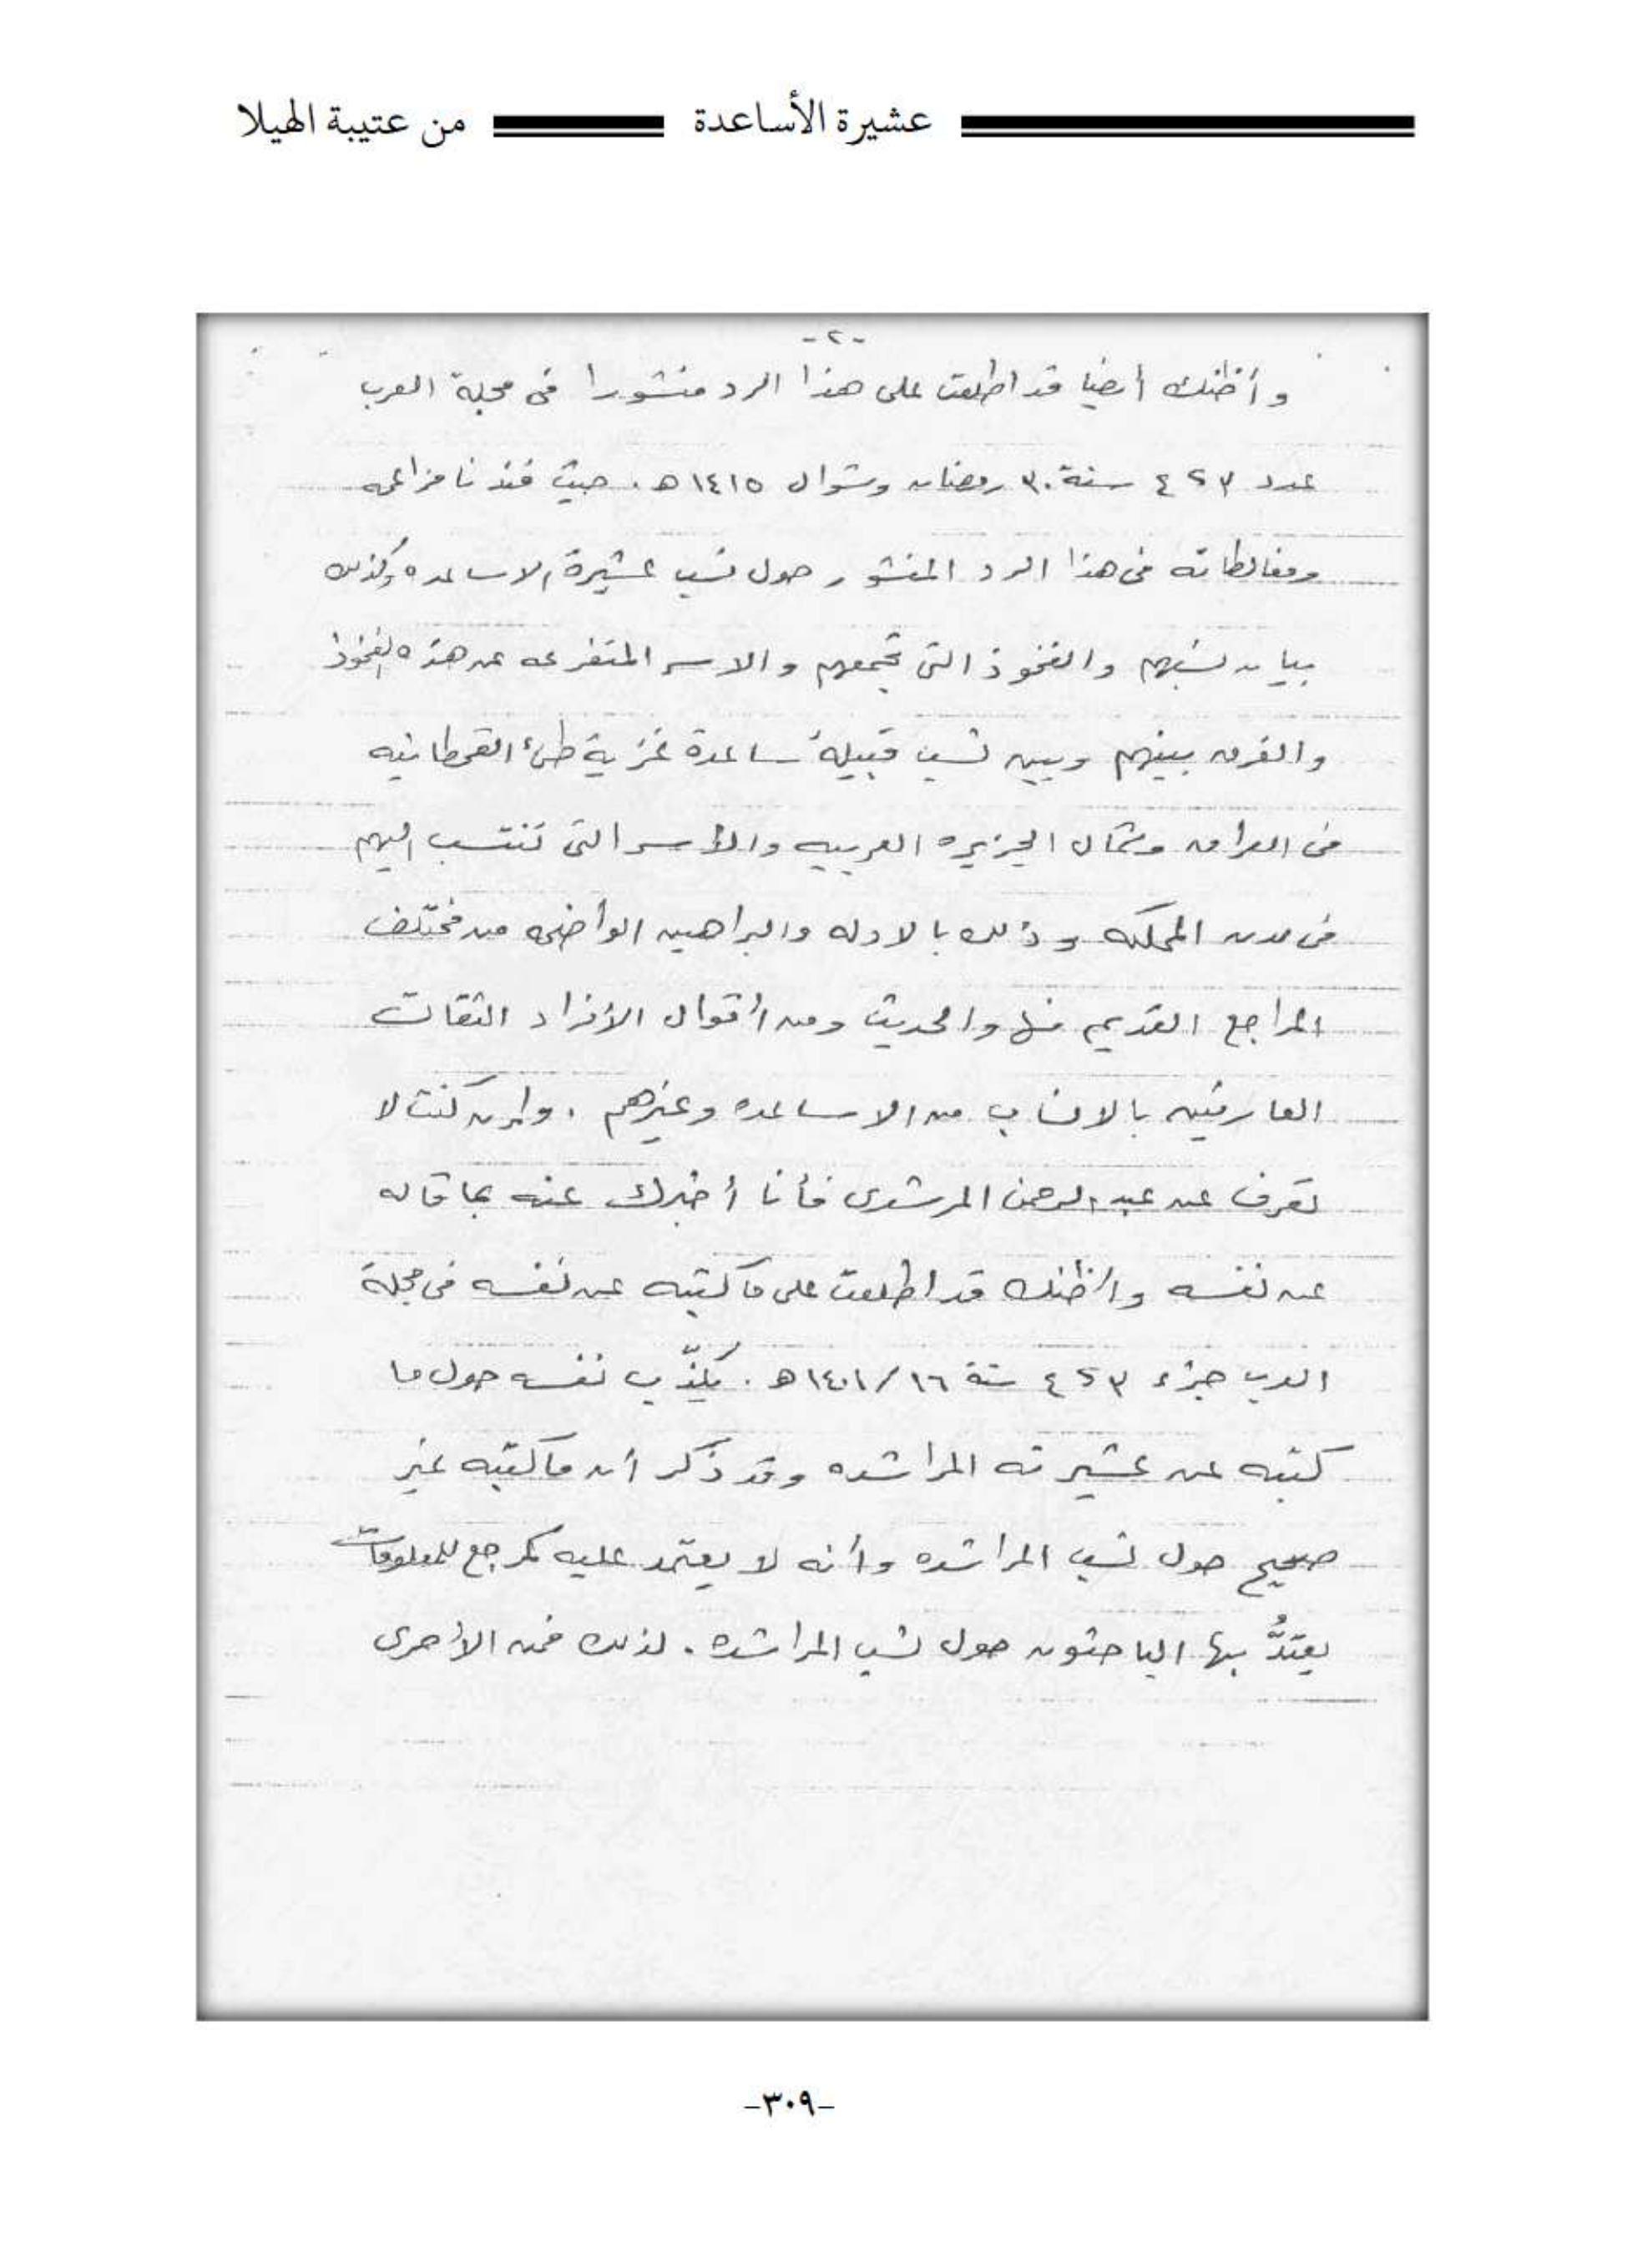 عشيرة الأساعدة من عتيبة الهيلا
-٢-
وأظنك أيضا قد اطلعت على هذا الرد منشورا فى مجلة العرب
عدد ٣ ، ٤ سنة ٣٠ رمضان وشوال ١٤١٥ هـ. حيث فندنا مزاعمه
ومغالطاته فى هذا الرد المنشور حول نسب عشيرة الاساعده وكذلك
بيان نسبهم والفخوذ التى تجمعهم والاسر المتفرعه عن هذه الفخوذ
والفرق بينهم وبين نسب قبيلة ساعدة غزية طئ القحطانيه
فى العراق وشمال الجزيره العربيه والأسر التى تنتسب اليهم
فى مدن المملكه وذلك بالادله والبراهين الواضحه من مختلف
المراجع القديم منها والحديث ومن أقوال الأفراد الثقات
العارفين بالانساب من الاساعده وغيرهم . وإن كنت لا
تعرف عن عبد الرحمن المرشدى فأنا أخبرك عنه بما قاله
عن نفسه وأظنك قد اطلعت على ما كتبه عن نفسه فى مجلة
العرب جزء ٣ ، ٤ سنة ١٦/١٤٠١هـ . يكذّب نفسه حول ما
كتبه عن عشيرته المراشده وقد ذكر أن ما كتبه غير
صحيح حول نسب المراشده وأنه لا يعتمد عليه كمرجع للمعلومات
يعتدُّ بها الباحثون حول نسب المراشده . لذلك فمن الأحرى
-٣٠٩-